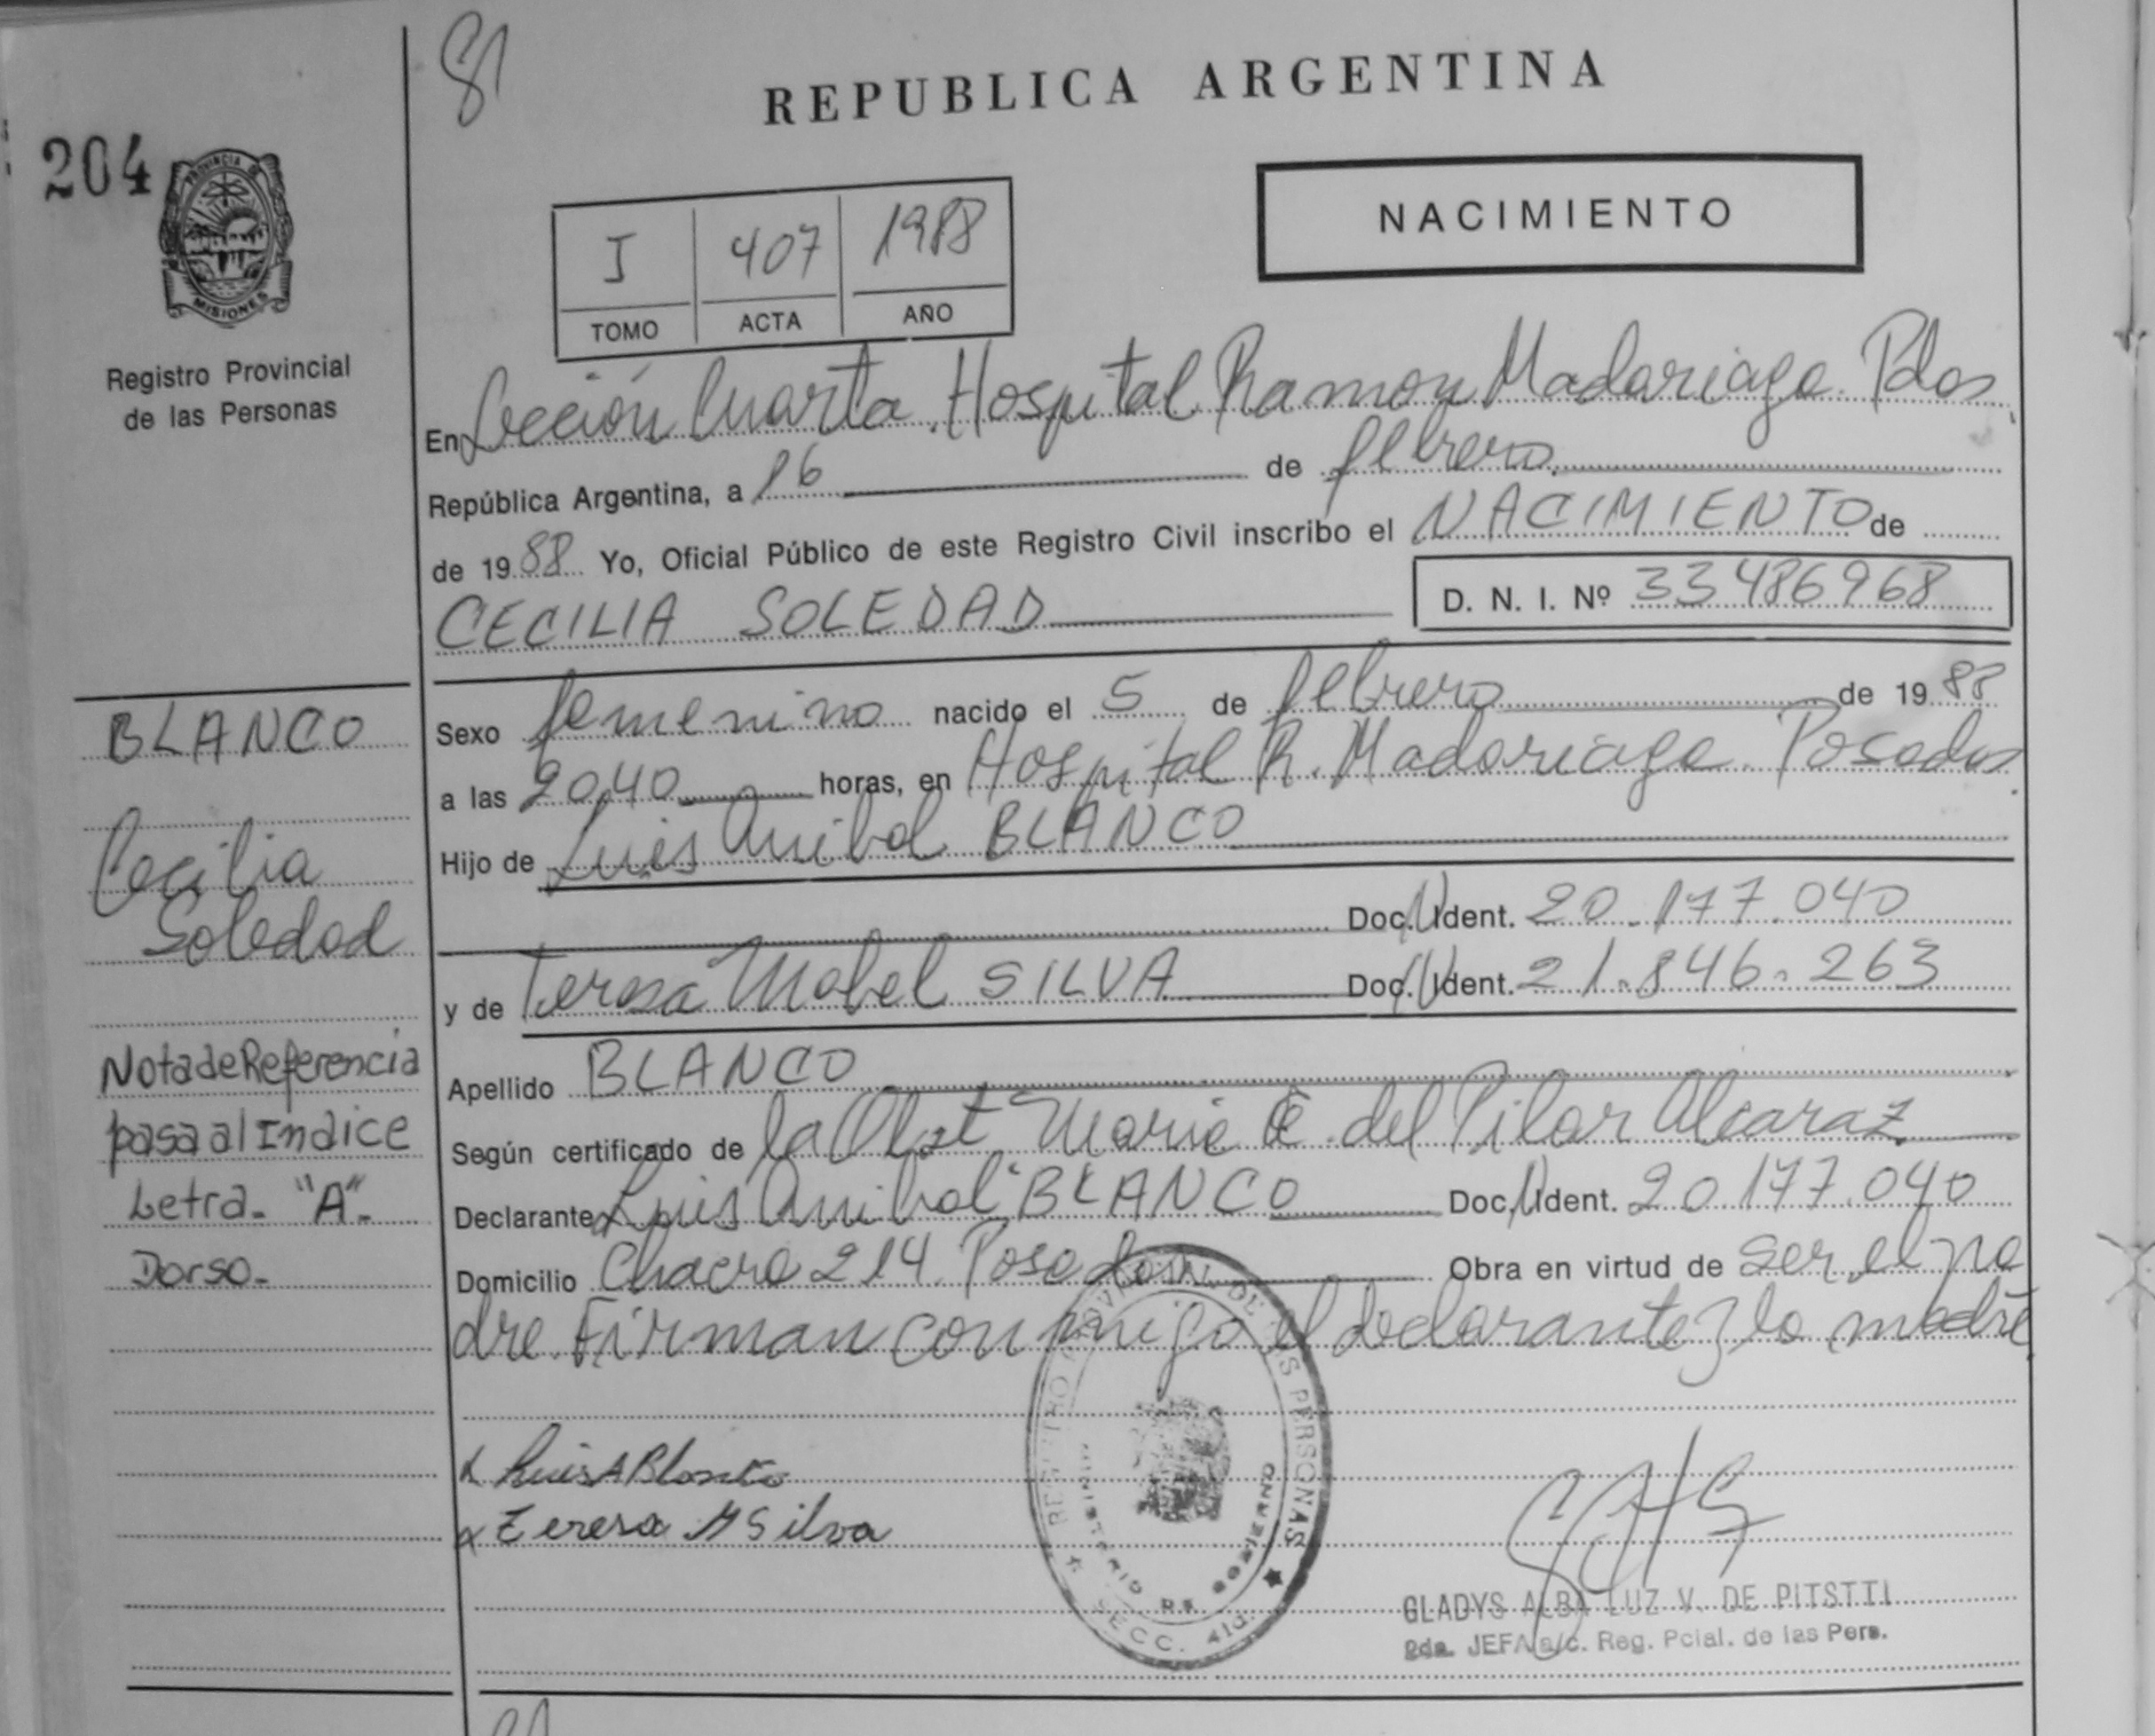 81
REPUBLICA ARGENTINA
204
PROVINCIA DE
MISIONES
Registro Provincial
de las Personas
NACIMIENTO
I 407 1988
TOMO ACTA AÑO
En Sección Cuarta. Hospital Ramon Madariaga. Pdas.
República Argentina, a 16 de febrero
de 1988 Yo, Oficial Público de este Registro Civil inscribo el NACIMIENTO de
CECILIA SOLEDAD D. N. I. Nº 33486968
Sexo femenino nacido el 5 de febrero de 1988
a las 20,40 horas, en Hospital R. Madariaga. Posadas.
Hijo de Luis Anibal BLANCO
Doc. Ident. 20.177.040
y de Teresa Mabel SILVA Doc. Ident. 21.846.263
Apellido BLANCO
Según certificado de la Obst. Maria del Pilar Alcaraz
Declarante Luis Anibal BLANCO Doc. Ident. 20.177.040
Domicilio Chacra 214. Posadas Obra en virtud de ser el pa
dre. Firman conmigo el declarante y la madre
BLANCO
Cecilia
Soledad
Nota de Referencia
pasa al Indice
Letra- "A"-
Dorso-
x Luis A Blanco
x Teresa M Silva
REGISTRO PROVINCIAL DE LAS PERSONAS
MINISTERIO DE GOBIERNO
SECC. 4ta.
GLADYS ALBA LUZ V. DE PITSTTI
2da. JEFA a/c. Reg. Pcial. de las Pers.